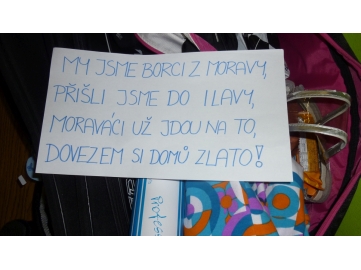 MY JSME BORCI Z MORAVY,
PŘIŠLI JSME DO ILAVY,
MORAVÁCI UŽ JDOU NA TO,
DOVEZEM SI DOMŮ ZLATO!